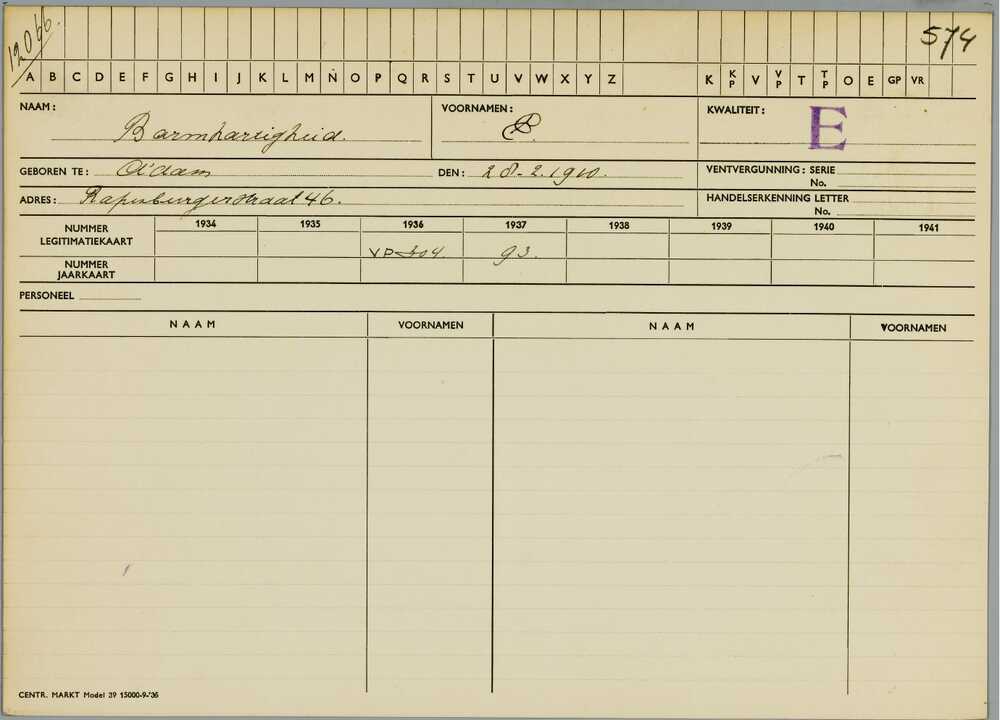 12066
574
A B C D E F G H I J K L M N O P Q R S T U V W X Y Z K KP V VP T TP O E GP VR
NAAM: Barmhartigheid. VOORNAMEN: KWALITEIT: E
GEBOREN TE: A'dam DEN: 28-2.1910. VENTVERGUNNING: SERIE
No.
ADRES: Rapenburgerstraat 46. HANDELSERKENNING LETTER
No.
NUMMER LEGITIMATIEKAART 1934 1935 1936 1937 1938 1939 1940 1941
VP 93.
NUMMER JAARKAART
PERSONEEL
NAAM VOORNAMEN NAAM VOORNAMEN
CENTR. MARKT Model 39 15000-9-'36